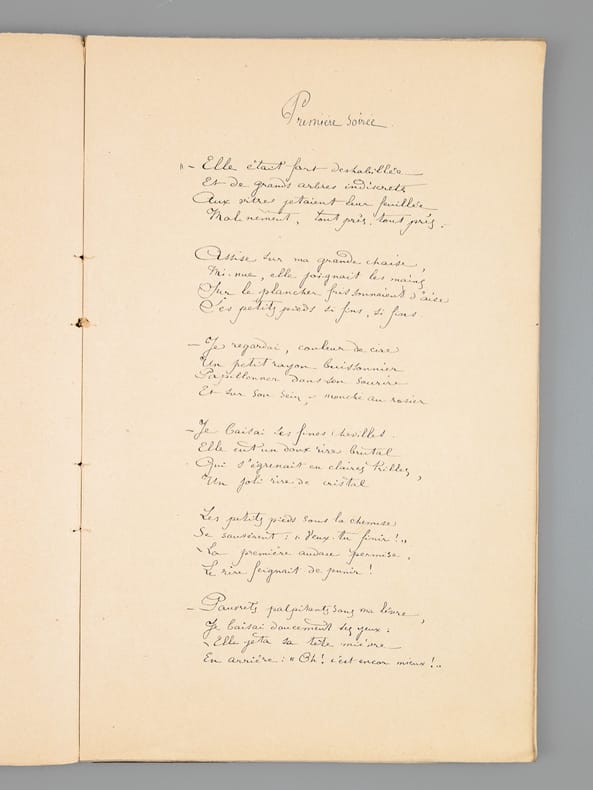 Première soirée.
"– Elle était fort deshabillée
Et de grands arbres indiscrets
Aux vitres jetaient leur feuillée
Malinement, tout près, tout près.
Assise sur ma grande chaise,
Mi-nue, elle joignait les mains,
Sur le plancher frissonnaient d'aise
Ses petits pieds si fins, si fins.
– Je regardai, couleur de cire
Un petit rayon buissonnier
Papillonner dans son sourire
Et sur son sein, – mouche au rosier
– Je baisai ses fines chevilles.
Elle eut un doux rire brutal
Qui s'égrenait en claires trilles,
Un joli rire de cristal
Les petits pieds sous la chemise
Se sauvèrent : "Veux-tu finir !"
– La première audace permise,
Le rire feignait de punir !
– Pauvrets palpitants sous ma lèvre,
Je baisai doucement ses yeux :
– Elle jeta sa tête mièvre
En arrière : "Oh ! c'est encor mieux !"